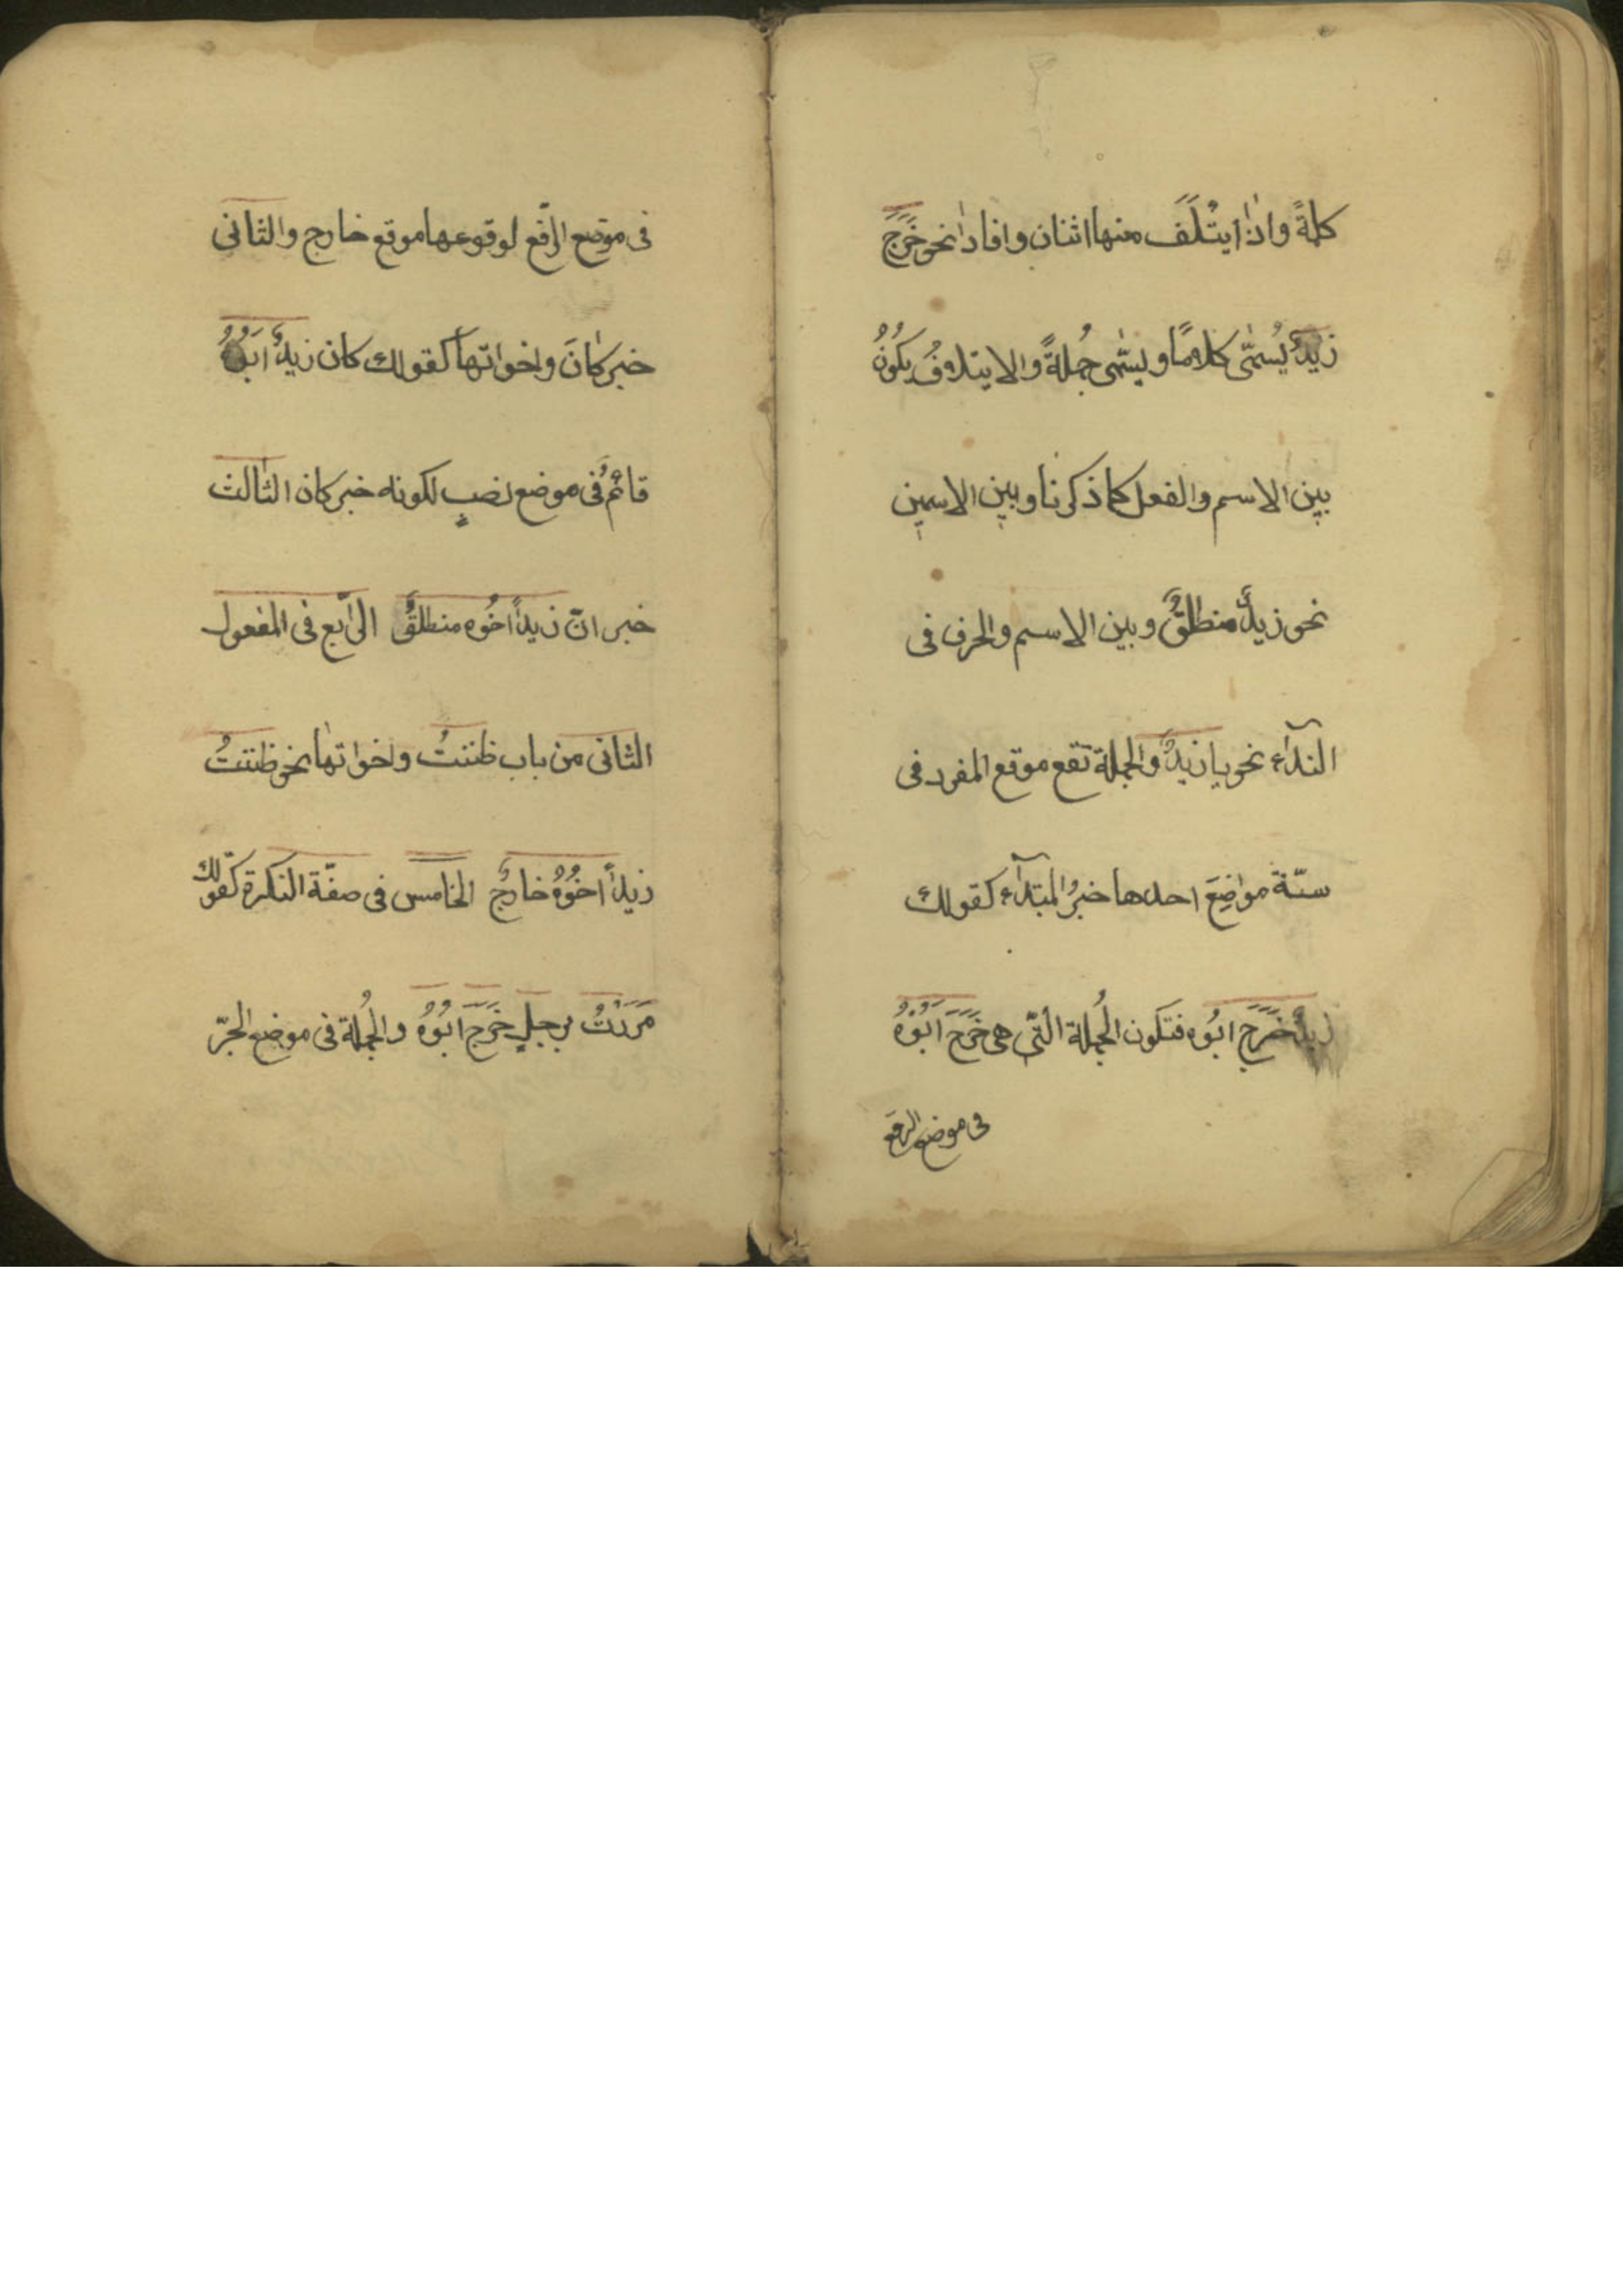 كلمةً واذا ايتُلَفَ منها اثنان وافادا نحو خَرَجَ
زيدٌ يُسمّى كلامًا ويسمّى جُملةً والايتلافُ يكُونُ
بين الاسم والفعل كما ذكرنا وبين الاسمين
نحو زيدٌ منطلقٌ وبين الاسم والحرف فى
الندآء نحو يا زيدُ والجملة تقع موقع المفرد فى
ستّة مواضِعَ احدها خبرُ المبتدآء كقولك
زيدٌ خَرَجَ ابُوه فتكون الجُملة الّتى هى خَرَجَ اَبُوُهُ
فى موضع الرفع
فى موضع الرّفع لوقوعها موقع خارج والثانى
خبر كانَ واخواتها كقولك كان زيدٌ اَبُوُهُ
قائمٌ فى موضع نصبٍ لكونه خبر كان الثالث
خبر انّ زيداً اخُوه منطلقٌ الرّابع فى المفعول
الثانى من باب ظننتُ واخواتها نحو ظننتُ
زيداً اخُوُهُ خارجٌ الخامس فى صفّة النكرة كقولك
مَرَرْتُ برجلٍ خَرَجَ ابُوُهُ والجُملة فى موضع الجرّ